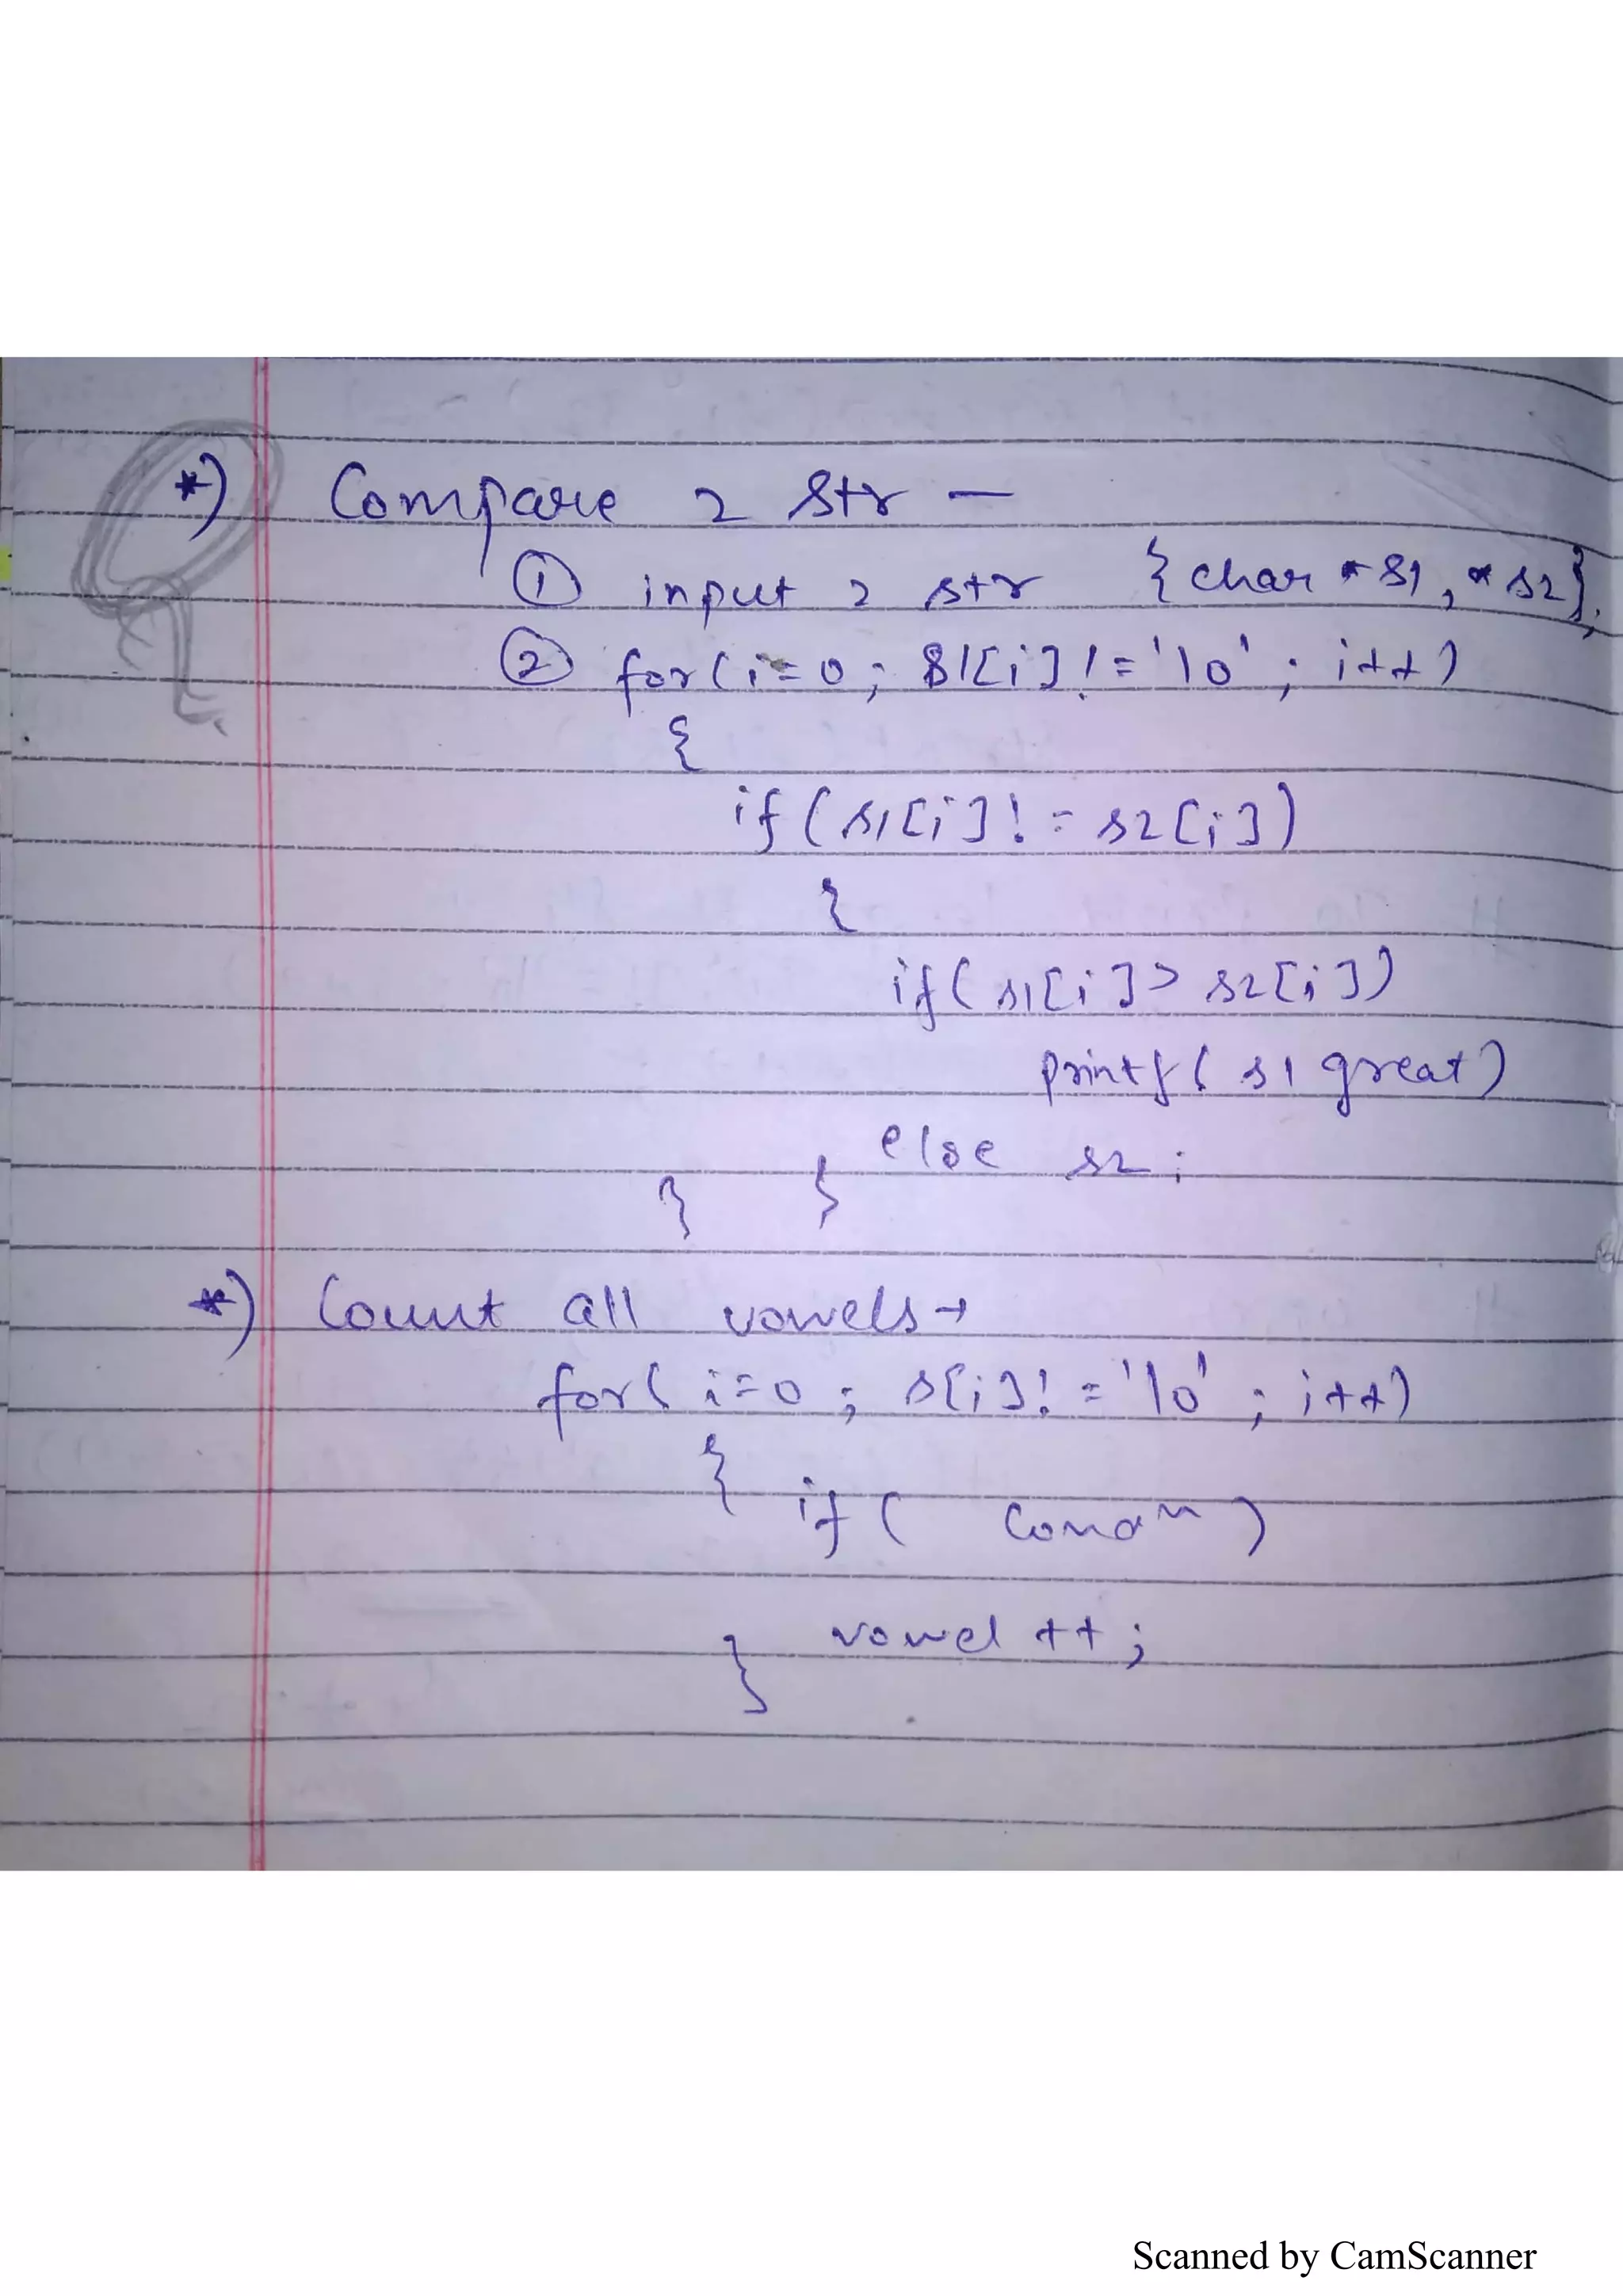 *) Compare 2 str –
① input 2 str {char *s1, *s2};
② for(i=0; s1[i]!='\0'; i++)
{
if(s1[i]!=s2[i])
{
if(s1[i]>s2[i])
printf(s1 great)
else s2;
} }
*) Count all vowels→
for(i=0; s[i]!='\0'; i++)
{ if( condn)
vowel++;
}
Scanned by CamScanner